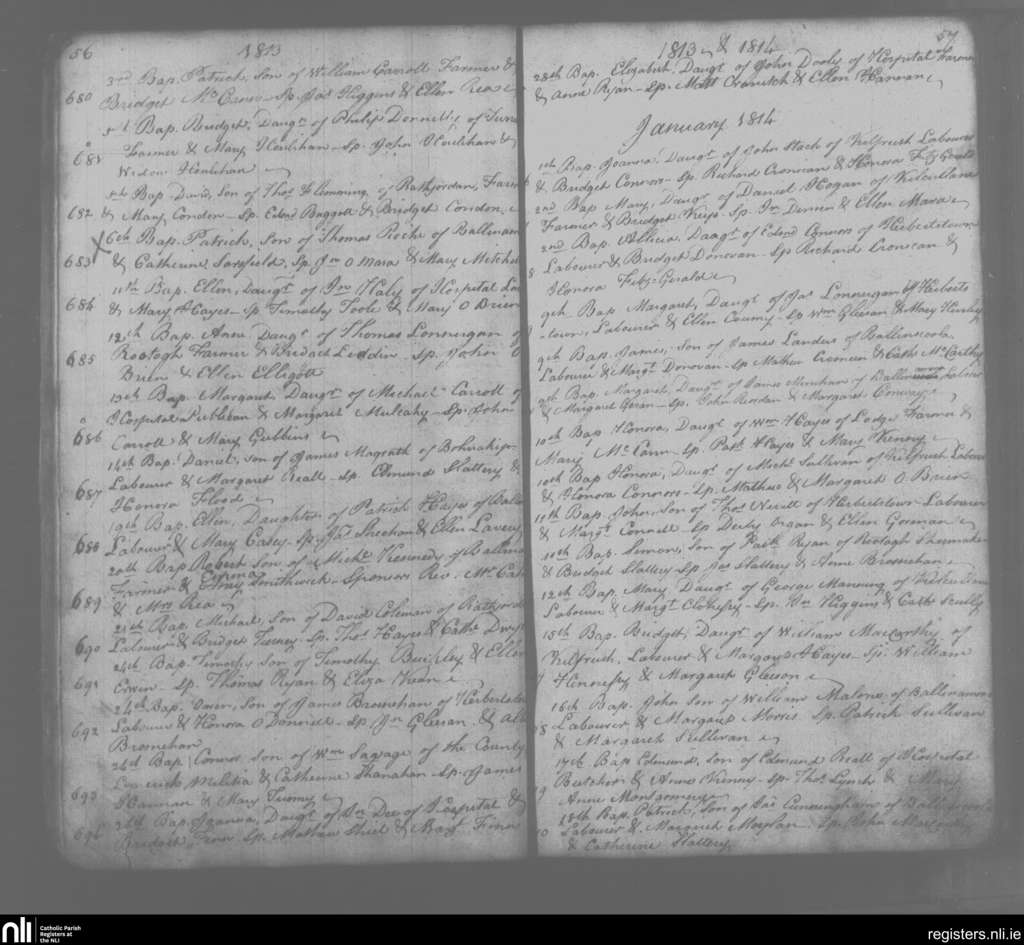 56
1813
3rd Bap. Patrick, Son of William Carroll Farmer &
680
Bridget - Sp. Jas Higgins & Ellen Rea
5th Bap. Bridget, Daugt. of Philip Donnelly of
681
Farmer & Mary Houlihan - Sp. John Houlihan &
Widow Houlihan
5th Bap. David, Son of Thos Flemming of Rathjordan, Farm
682
& Mary Condon - Sp. Edmd Baggott & Bridget Condon
X 6th Bap. Patrick, Son of Thomas Roche of Ballinam
683
& Catherine Sarsfield, Sp. Jn O Mara & Mary Mitchel
11th Bap. Ellen, Daugt. of Jn Haly of Hospital La
684
& Mary Hayes - Sp. Timothy Toole & Mary O Brien
12th Bap. Anne Daugt. of Thomas Lonnergan of
685
Rootagh Farmer & Bridget - Sp. John O
Brien & Ellen Elligott
13th Bap. Margaret, Daugt. of Michael Carroll of
Hospital Publican & Margaret Mulcahy - Sp. John
686
Carroll & Mary Gubbins
14th Bap. Daniel, Son of James Magrath of
687
Labourer & Margaret Reall - Sp. Edmund Slattery &
Honora Flood
19th Bap. Ellen, Daughter of Patrick Hayes of
688
Labourer & Mary Casey - Sp. Jas. Sheehan & Ellen Lavery
20th Bap. Robert Son of Michl. Kennedy of Ballina
Farmer & Southwick, Sponsors Rev. Mr.
689
& Mrs Rea
21st Bap. Michael, Son of David Coleman of Rathjord
690
Labourer & Bridget Tierney - Sp. Thos. Hayes & Cathe. Dwy
24th Bap. Timothy Son of Timothy Buckley & Ellen
691
Erwin - Sp. Thomas Ryan & Eliza Kean
24th Bap. Owen, Son of James Brosnehan of Herbertsto
692
Labourer & Honora O Donnell - Sp. Jn Gleeson &
Brosnehan
26th Bap. Connor, Son of Wm Savage of the County
Limerick Militia & Catherine Shanahan - Sp. James
693
Hannan & Mary Tuomy
26th Bap. Joanna, Daugt. of Jn Dee of Hospital &
694
Bridget, Finn Sp. Mathew Shiel & Margt. Finn
57
1813 & 1814
28th Bap. Elizabeth, Daugt. of John Dooly of Hospital Farmer
& Anne Ryan - Sp. Matt Cranitch & Ellen Hannan
January 1814
1st Bap. Joanna, Daugt. of John Stack of Kilfrush Labourer
& Bridget Connors - Sp. Richard Cronican & Honora Fitz Gerald
2nd Bap. Mary, Daugt. of Daniel Hogan of Kilcullane
Farmer & Bridget - Sp. Jn & Ellen Mara
2nd Bap. Allicia, Daugt. of Edmd Connors of Herbertstown
Labourer & Bridget Donovan - Sp. Richard Cronican &
Honora Fitz-Gerald
9th Bap. Margaret, Daugt. of Jas. Lonnergan of Herberts
-town, Labourer & Ellen - Sp. Wm Gleeson & Mary
9th Bap. James, Son of James Landers of Ballinscoola
Labourer & Margt. Donovan - Sp. Mathew Croneen & Cathe. Mc Carthy
9th Bap. Margaret, Daugt. of James of Labour
& Margaret - Sp. John Riordan & Margaret Conway
10th Bap. Honora, Daugt. of Wm Hayes of Lodge Farmer &
Mary Mc Cann - Sp. Patk. Hayes & Mary Kenny
10th Bap. Honora, Daugt. of Michl. Sullivan of Kilfrush Labour
& Honora Connors - Sp. Mathew & Margaret O Brien
11th Bap. John, Son of Thos. of Herbertstown Labourer
& Margt. Connell Sp. Derby Organ & Ellen Gorman
11th Bap. Simon, Son of Patk. Ryan of Rootagh Shoemaker
& Bridget Slattery - Sp. Jas. Slattery & Anne Brosnehan
12th Bap. Mary Daugt. of George Manning of
Labour & Margt. - Sp. Wm Higgins & Cathe. Scully
15th Bap. Bridget, Daugt. of William Maccarthy of
Kilfrush, Labourer & Margaret Hayes - Sp. William
Hennessy & Margaret Gleeson
16th Bap. John Son of William Malone of Ballinamona
Labourer & Margaret Morris. Sp. Patrick Sullivan
& Margaret Sullivan
17th Bap. Edmund, Son of Edmund Reall of Hospital
Butcher & Anne Kenny - Sp. Thos. Lynch & Mary
Anne Montgomery
18th Bap. Patrick, Son of Jas. Cunningham of
Labourer & Margaret Moylan - Sp. John
& Catherine Slattery
nli
Catholic Parish
Registers at
the NLI
registers.nli.ie